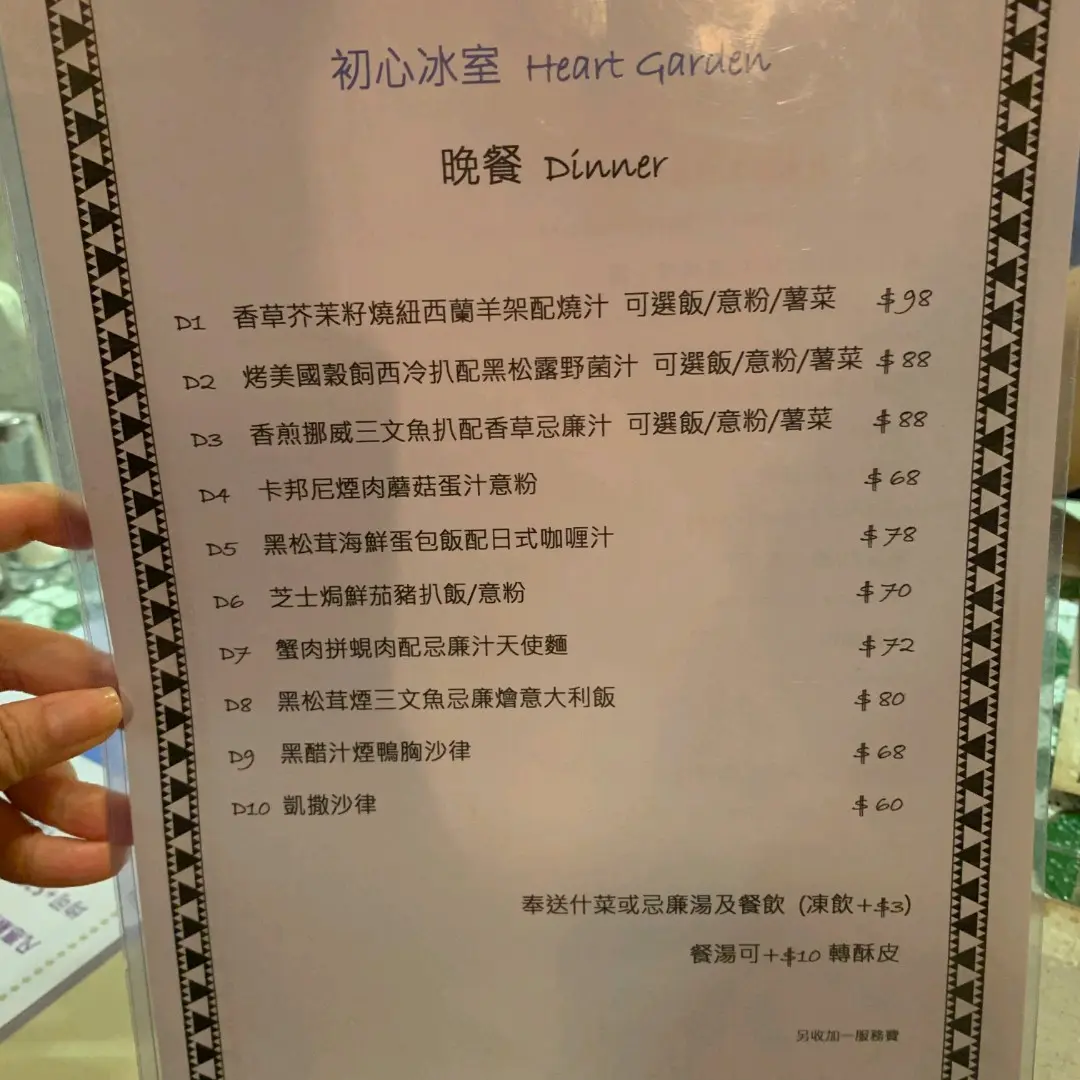 初心冰室 Heart Garden
晚餐 Dinner
D1 香草芥茉籽燒紐西蘭羊架配燒汁 可選飯/意粉/薯菜 $98
D2 烤美國穀飼西冷扒配黑松露野菌汁 可選飯/意粉/薯菜 $88
D3 香煎挪威三文魚扒配香草忌廉汁 可選飯/意粉/薯菜 $88
D4 卡邦尼煙肉蘑菇蛋汁意粉 $68
D5 黑松茸海鮮蛋包飯配日式咖喱汁 $78
D6 芝士焗鮮茄豬扒飯/意粉 $70
D7 蟹肉拼蜆肉配忌廉汁天使麵 $72
D8 黑松茸煙三文魚忌廉燴意大利飯 $80
D9 黑醋汁煙鴨胸沙律 $68
D10 凱撒沙律 $60
奉送什菜或忌廉湯及餐飲 (凍飲+$3)
餐湯可+$10 轉酥皮
另收加一服務費